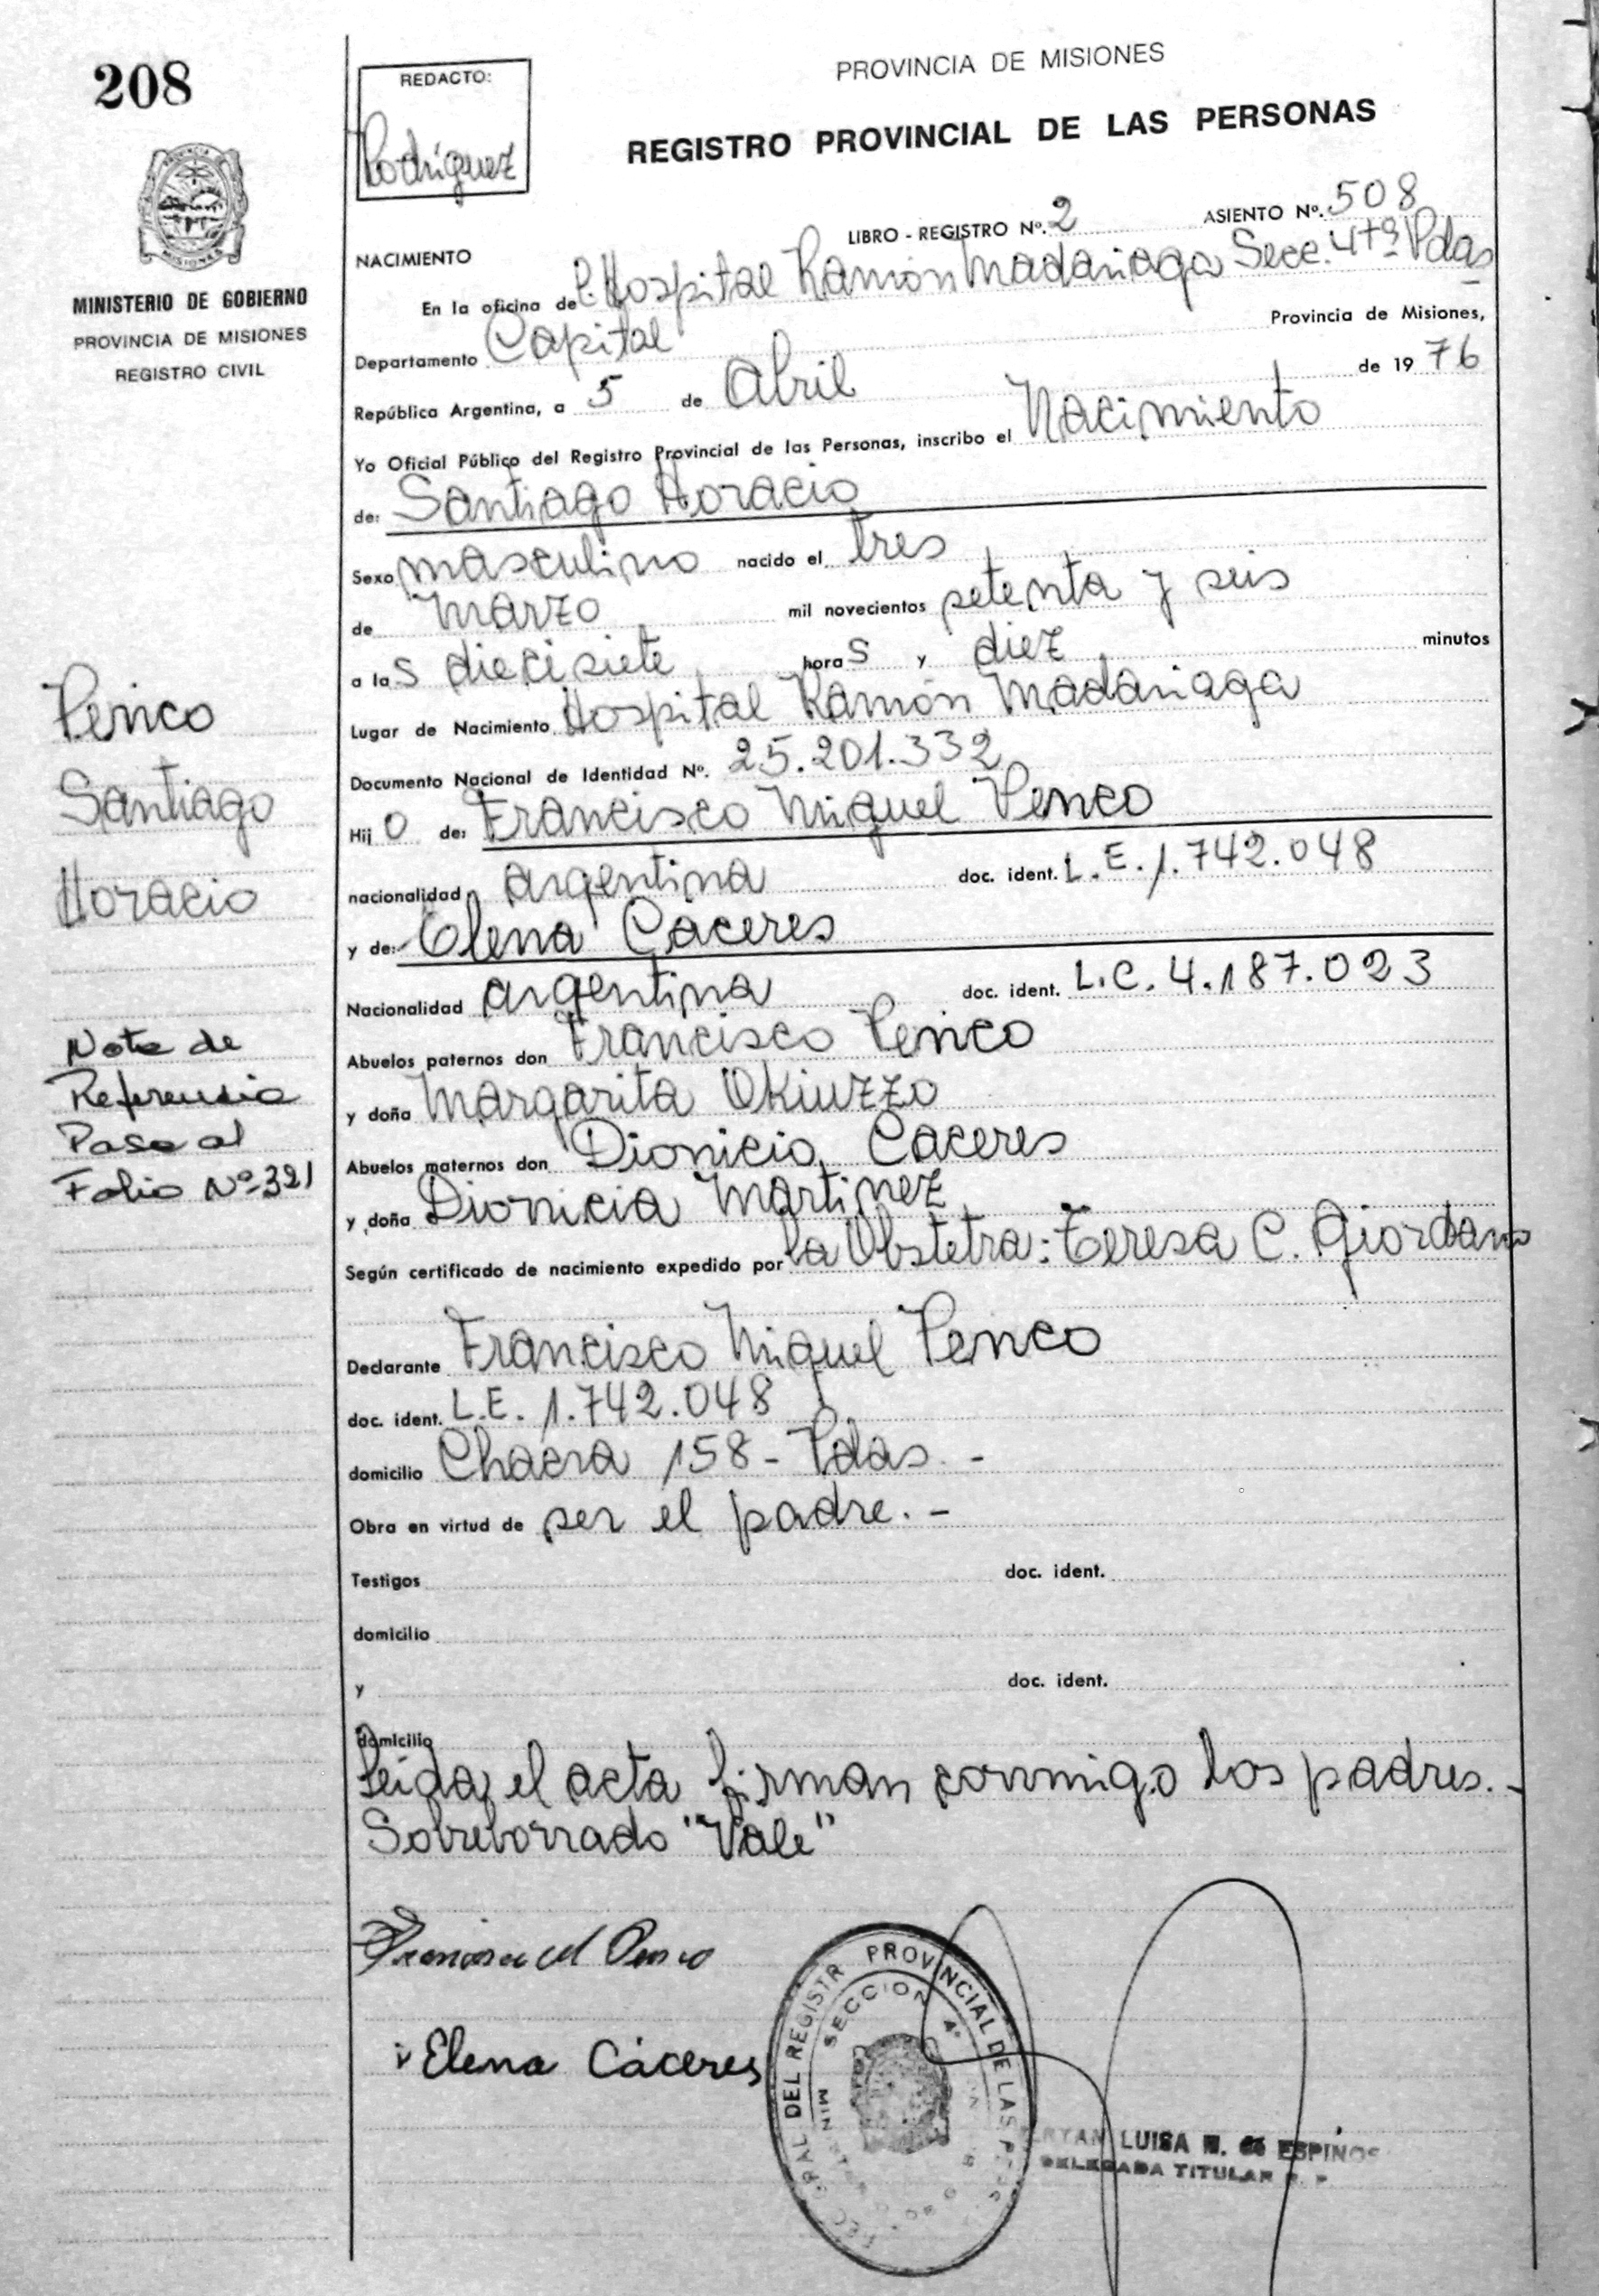 208
PROVINCIA DE MISIONES
MINISTERIO DE GOBIERNO
PROVINCIA DE MISIONES
REGISTRO CIVIL
Penco
Santiago
Horacio
Nota de
Referencia
Pasa al
Folio Nº 321
REDACTO:
Rodríguez
PROVINCIA DE MISIONES
REGISTRO PROVINCIAL DE LAS PERSONAS
LIBRO - REGISTRO Nº. 2 ASIENTO Nº. 508
NACIMIENTO
En la oficina del Hospital Ramón Madariaga Secc. 4ta Pdas
Departamento Capital Provincia de Misiones,
República Argentina, a 5 de Abril de 1976
Yo Oficial Público del Registro Provincial de las Personas, inscribo el Nacimiento
de: Santiago Horacio
Sexo masculino nacido el tres
de Marzo mil novecientos setenta y seis
a las diecisiete horas y diez minutos
Lugar de Nacimiento Hospital Ramón Madariaga
Documento Nacional de Identidad Nº. 25.201.332
Hijo de: Francisco Miguel Penco
nacionalidad argentina doc. ident. L.E. 1.742.048
y de: Elena Caceres
Nacionalidad argentina doc. ident. L.C. 4.187.023
Abuelos paternos don Francisco Penco
y doña Margarita Okiuzzo
Abuelos maternos don Dionicio Caceres
y doña Dionicia Martinez
Según certificado de nacimiento expedido por la Obstetra: Teresa C. Giordano
Declarante Francisco Miguel Penco
doc. ident. L.E. 1.742.048
domicilio Chacra 158 - Pdas. -
Obra en virtud de ser el padre. -
Testigos doc. ident.
domicilio
y doc. ident.
domicilio
Leida el acta firman conmigo los padres. -
Sobreborrado "Vale"
Francisco M Penco
Elena Cáceres
DEL REGISTR PROVINCIAL DE LAS
SECCION 4ª
LUISA
DELEGADA TITULAR